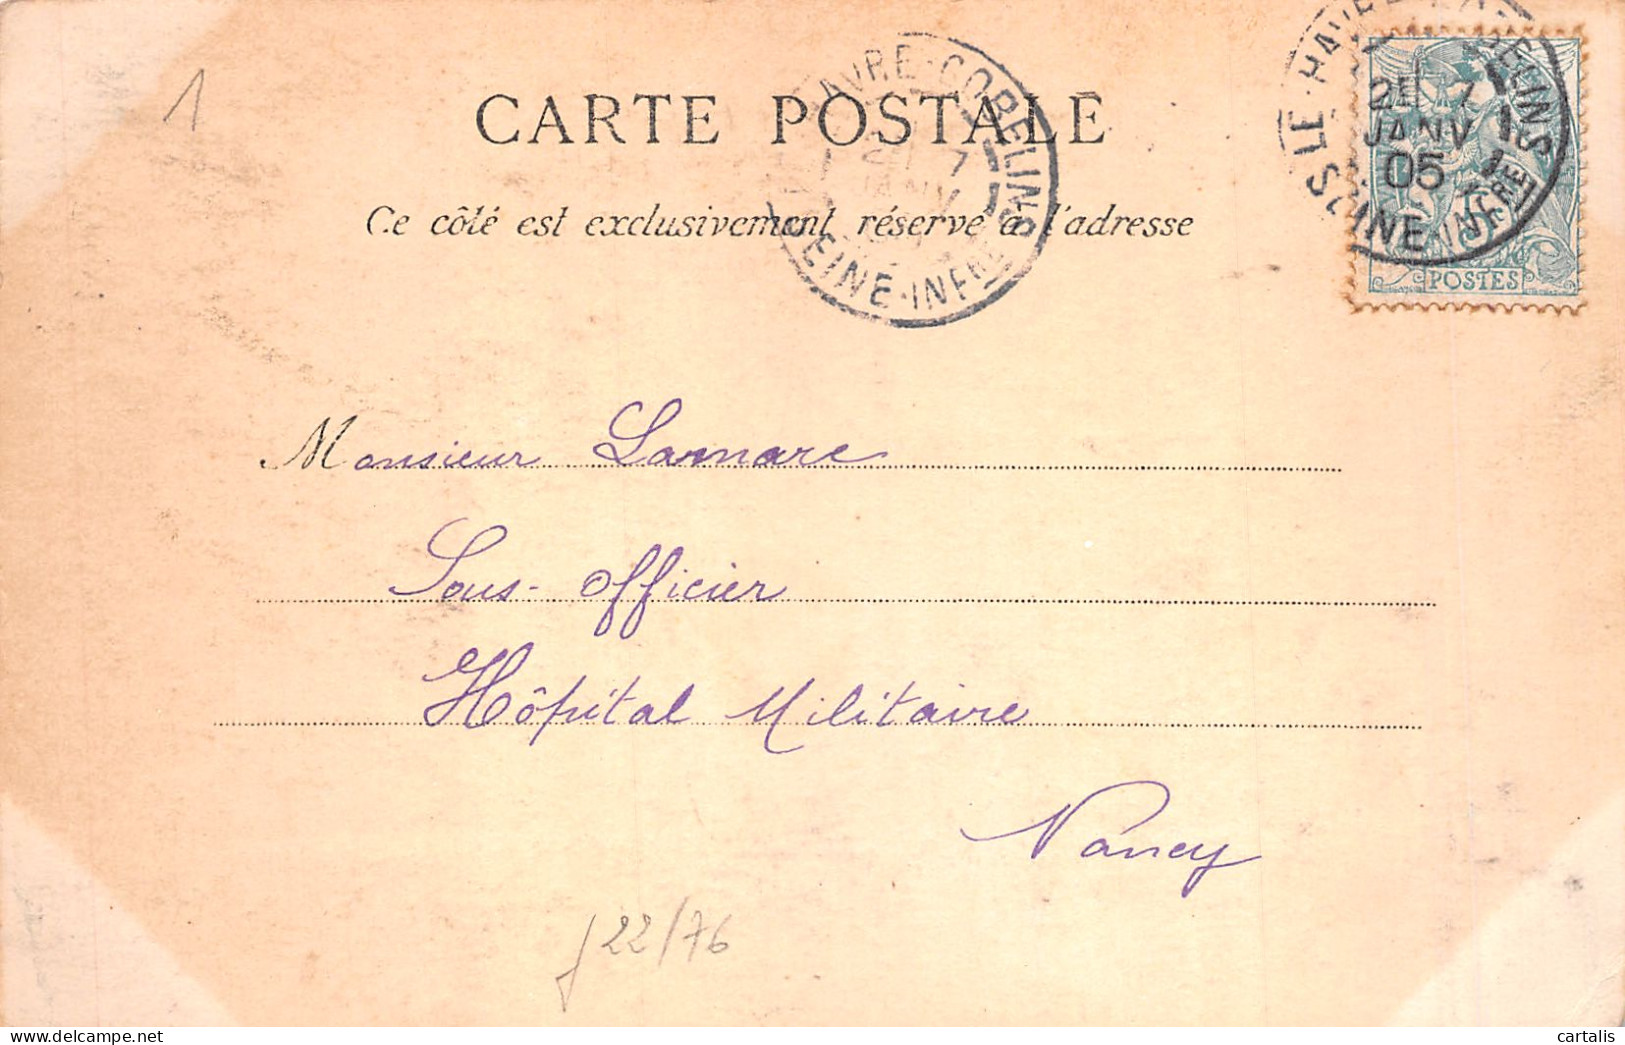 1
CARTE POSTALE
Ce côté est exclusivement réservé à l'adresse
LE HAVRE-GOBELINS
7
JANV
05
SEINE-INFRE
5
POSTES
AVRE-GOBELINS
7
JANV
EINE-INFRE
Monsieur Lamare
Sous-officier
Hôpital Militaire
Nancy
22/76
cartalis